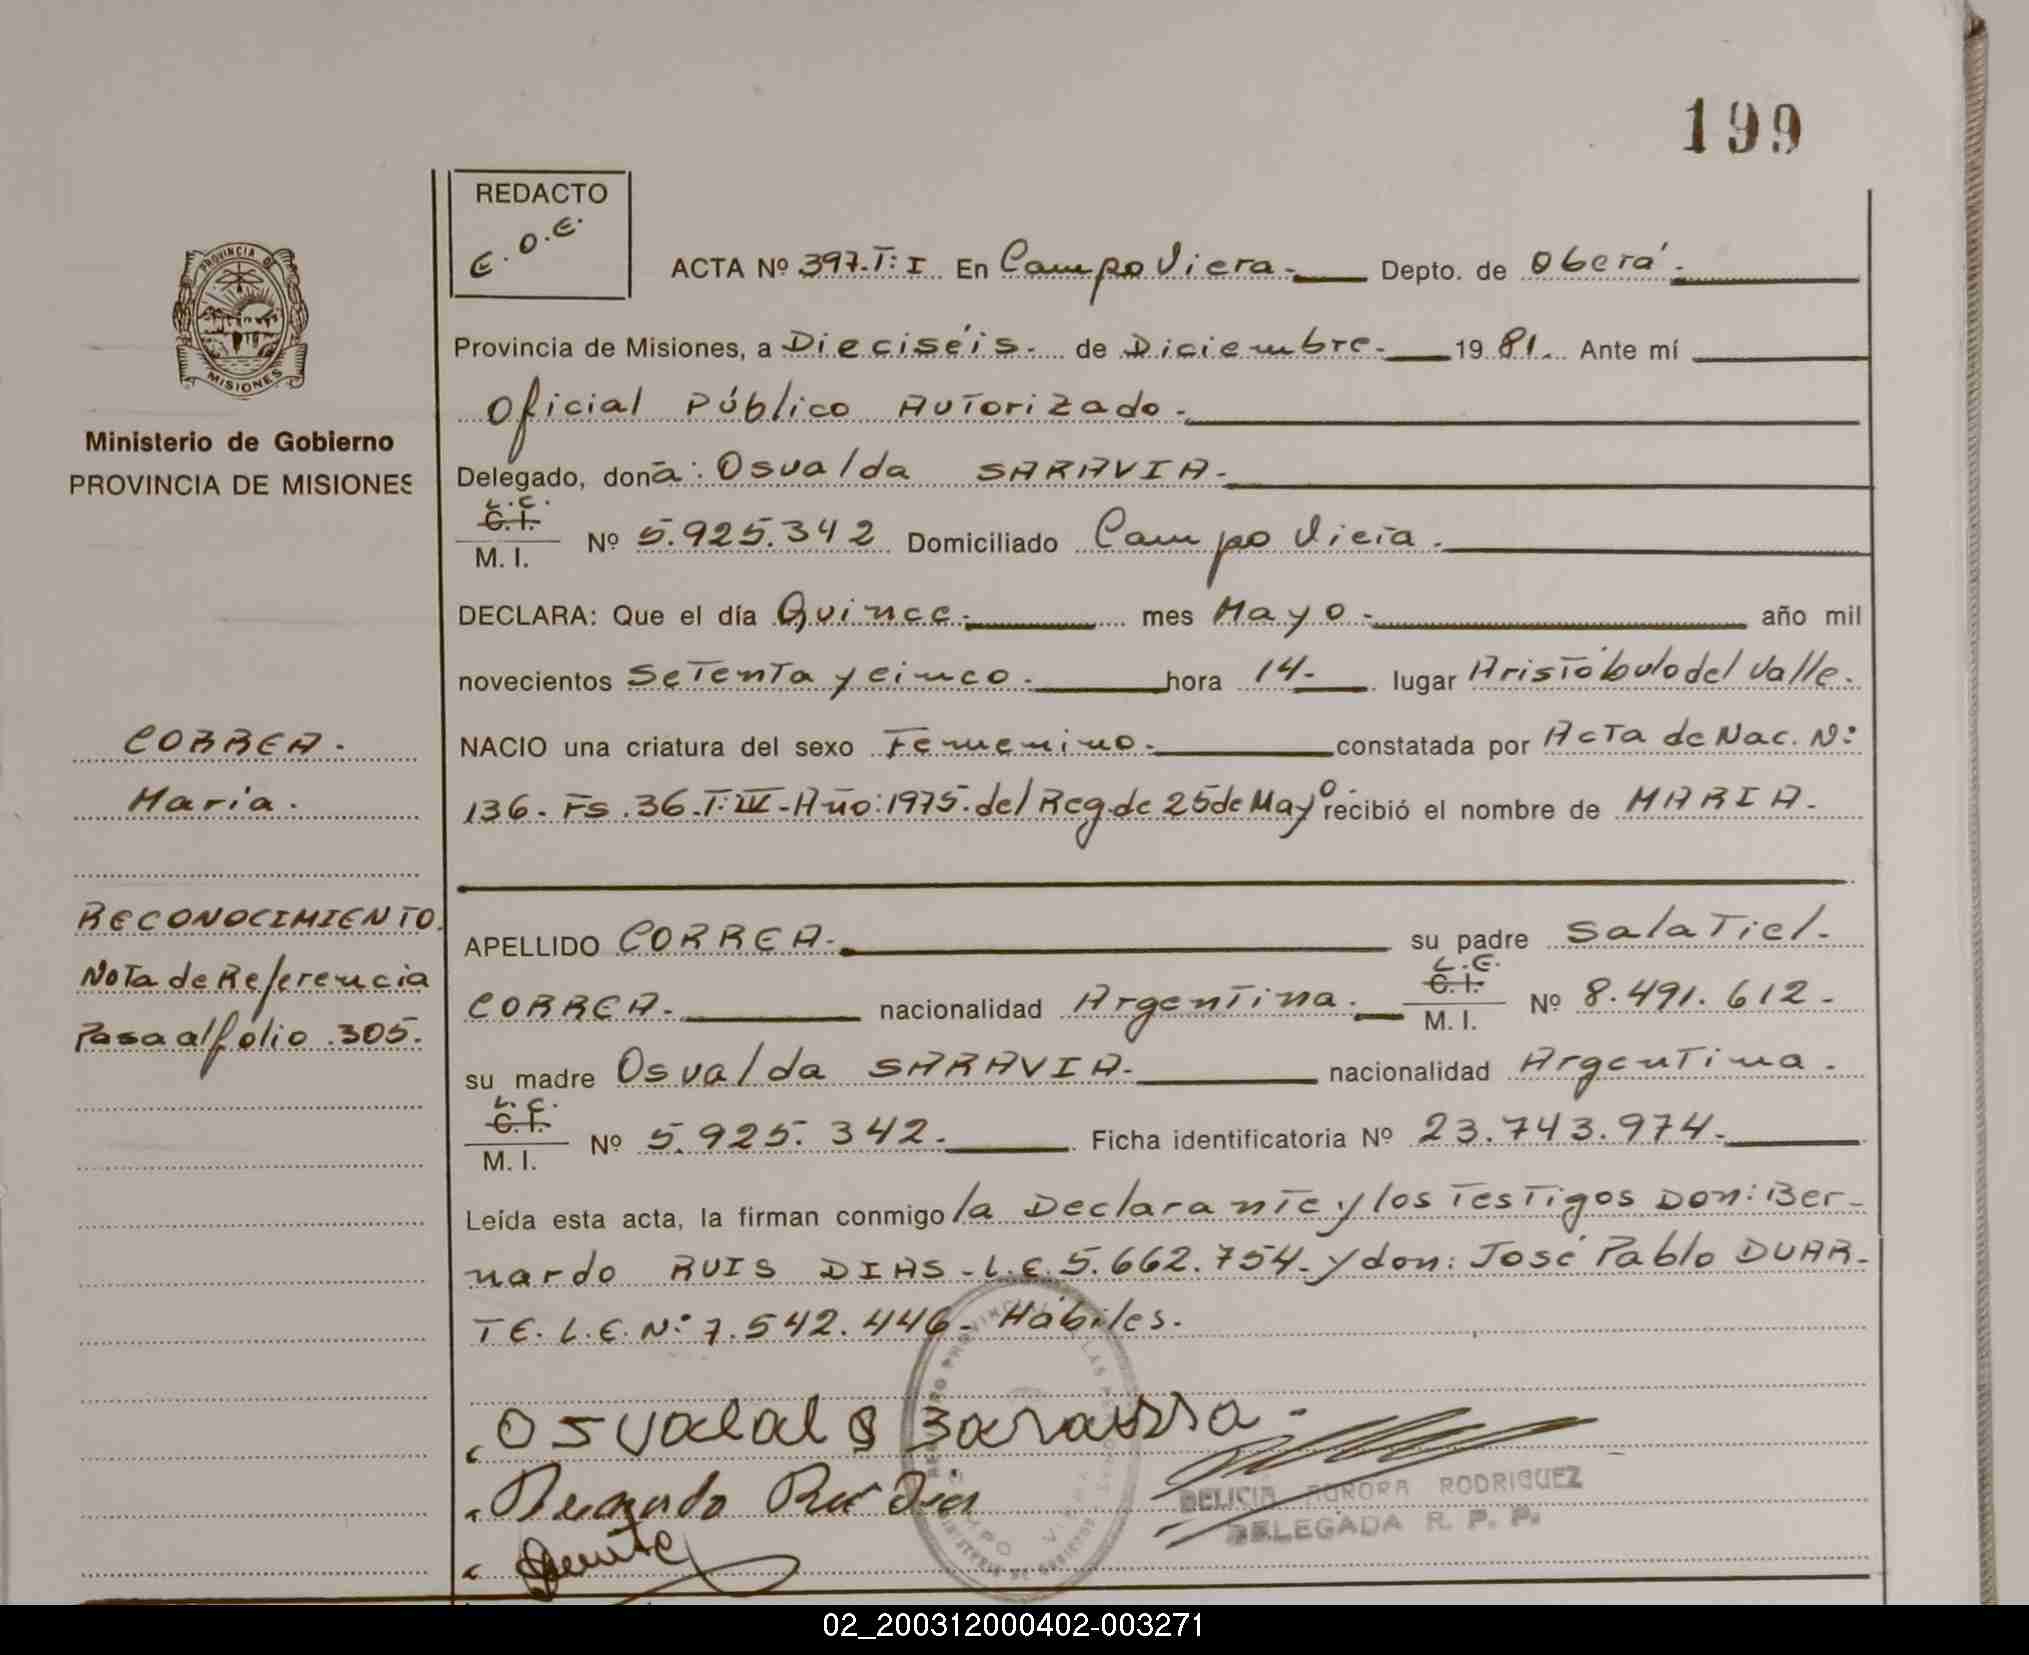 199
REDACTO
E.O.E.
ACTA Nº 397-T:I En Campo Viera.- Depto. de Oberá.-
Provincia de Misiones, a Dieciséis. de Diciembre.- 19 81. Ante mí
Oficial Público Autorizado.-
Delegado, doña: Osvalda SARAVIA.-
L.C.
C.I.
M. I. Nº 5.925.342 Domiciliado Campo Viera.
DECLARA: Que el día Quince.- mes Mayo.- año mil
novecientos Setenta y cinco.- hora 14.- lugar Aristóbulo del Valle.
NACIO una criatura del sexo Femenino.- constatada por Acta de Nac. N:
136. Fs. 36.T:III-Año:1975.del Reg.de 25 de Mayo recibió el nombre de MARIA.-
APELLIDO CORREA.- su padre Salatiel.-
L.E.
CORREA.- nacionalidad Argentina.- C.I. M. I. Nº 8.491.612.-
su madre Osvalda SARAVIA.- nacionalidad Argentina.-
L.C.
C.I.
M. I. Nº 5.925.342.- Ficha identificatoria Nº 23.743.974.-
Leída esta acta, la firman conmigo la Declarante y los Testigos Don: Ber-
nardo RUIS DIAS-L.E.5.662.754-y don: José Pablo DUAR-
TE. L.E.N: 7.542.446- Hábiles.
PROVINCIA DE
MISIONES
Ministerio de Gobierno
PROVINCIA DE MISIONES
CORREA.
María.
RECONOCIMIENTO.
Nota de Referencia
Pasa al folio 305.
DELICIA AURORA RODRIGUEZ
DELEGADA R. P. P.
02_200312000402-003271